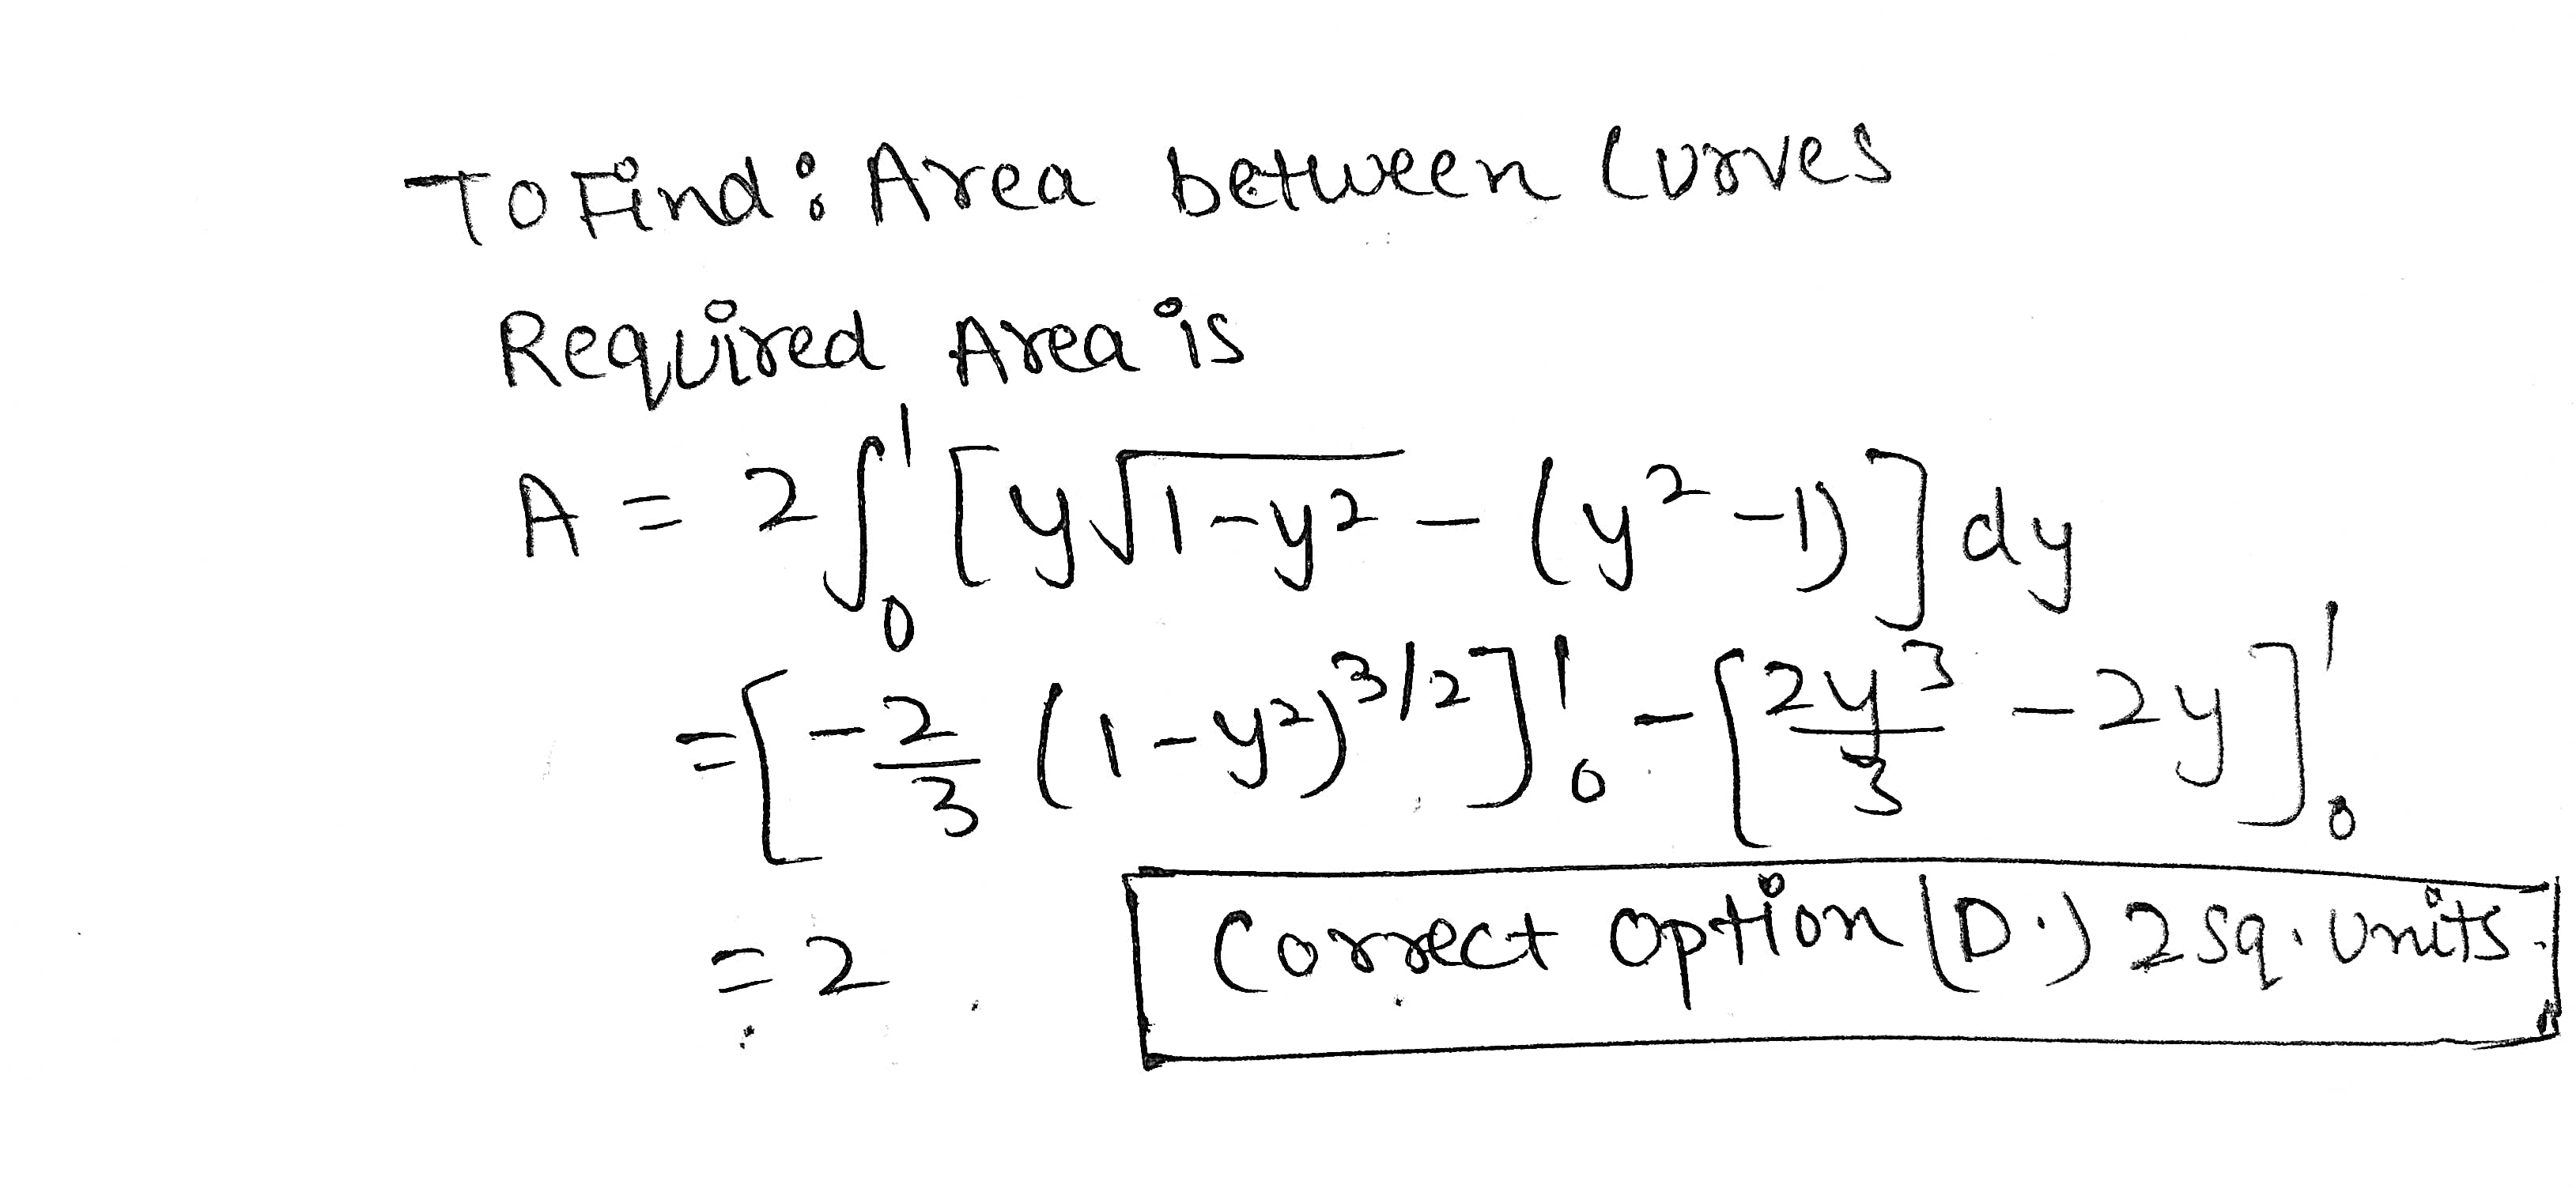 To Find: Area between Curves
Required Area is
A = 2∫₀¹ [y√(1-y²) - (y²-1)] dy
= [-2/3 (1-y²)^(3/2)]₀¹ - [2y³/3 - 2y]₀¹
= 2
Correct Option (D.) 2 sq. units.